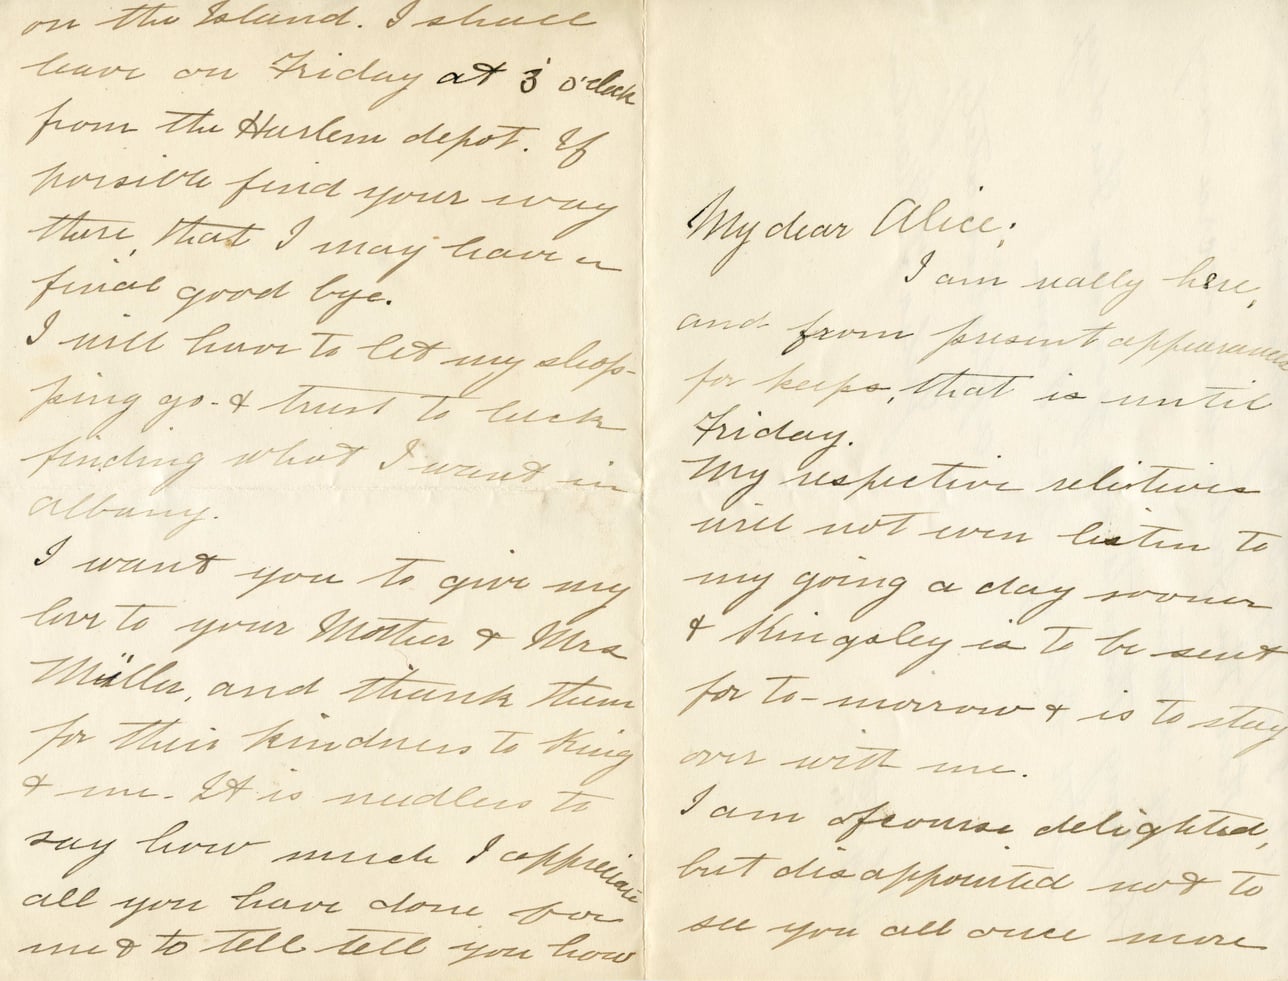 My dear Alice;
I am really here,
and from present appearances
for keeps, that is until
Friday.
My respective relitives
will not even listen to
my going a day sooner
& Kingsley is to be sent
for to-morrow & is to stay
over with me.
I am ofcourse delighted,
but disappointed not to
see you all once more
on the Island. I shall
leave on Friday at 3 o'clock
from the Harlem depot. If
possible find your way
there, that I may have a
final good bye.
I will have to let my shop-
ping go - & trust to luck
finding what I want in
Albany.
I want you to give my
love to your Mother & Mrs
Müller, and thank them
for their kindness to King
& me. It is needless to
say how much I appreciate
all you have done for
me & to tell tell you how